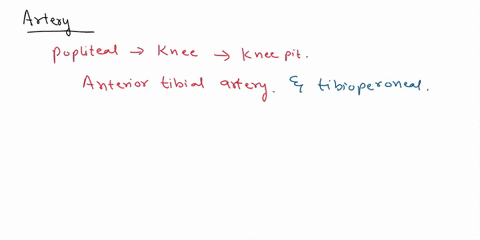 Artery
Popliteal → Knee → Knee pit.
Anterior tibial artery. & tibioperoneal.